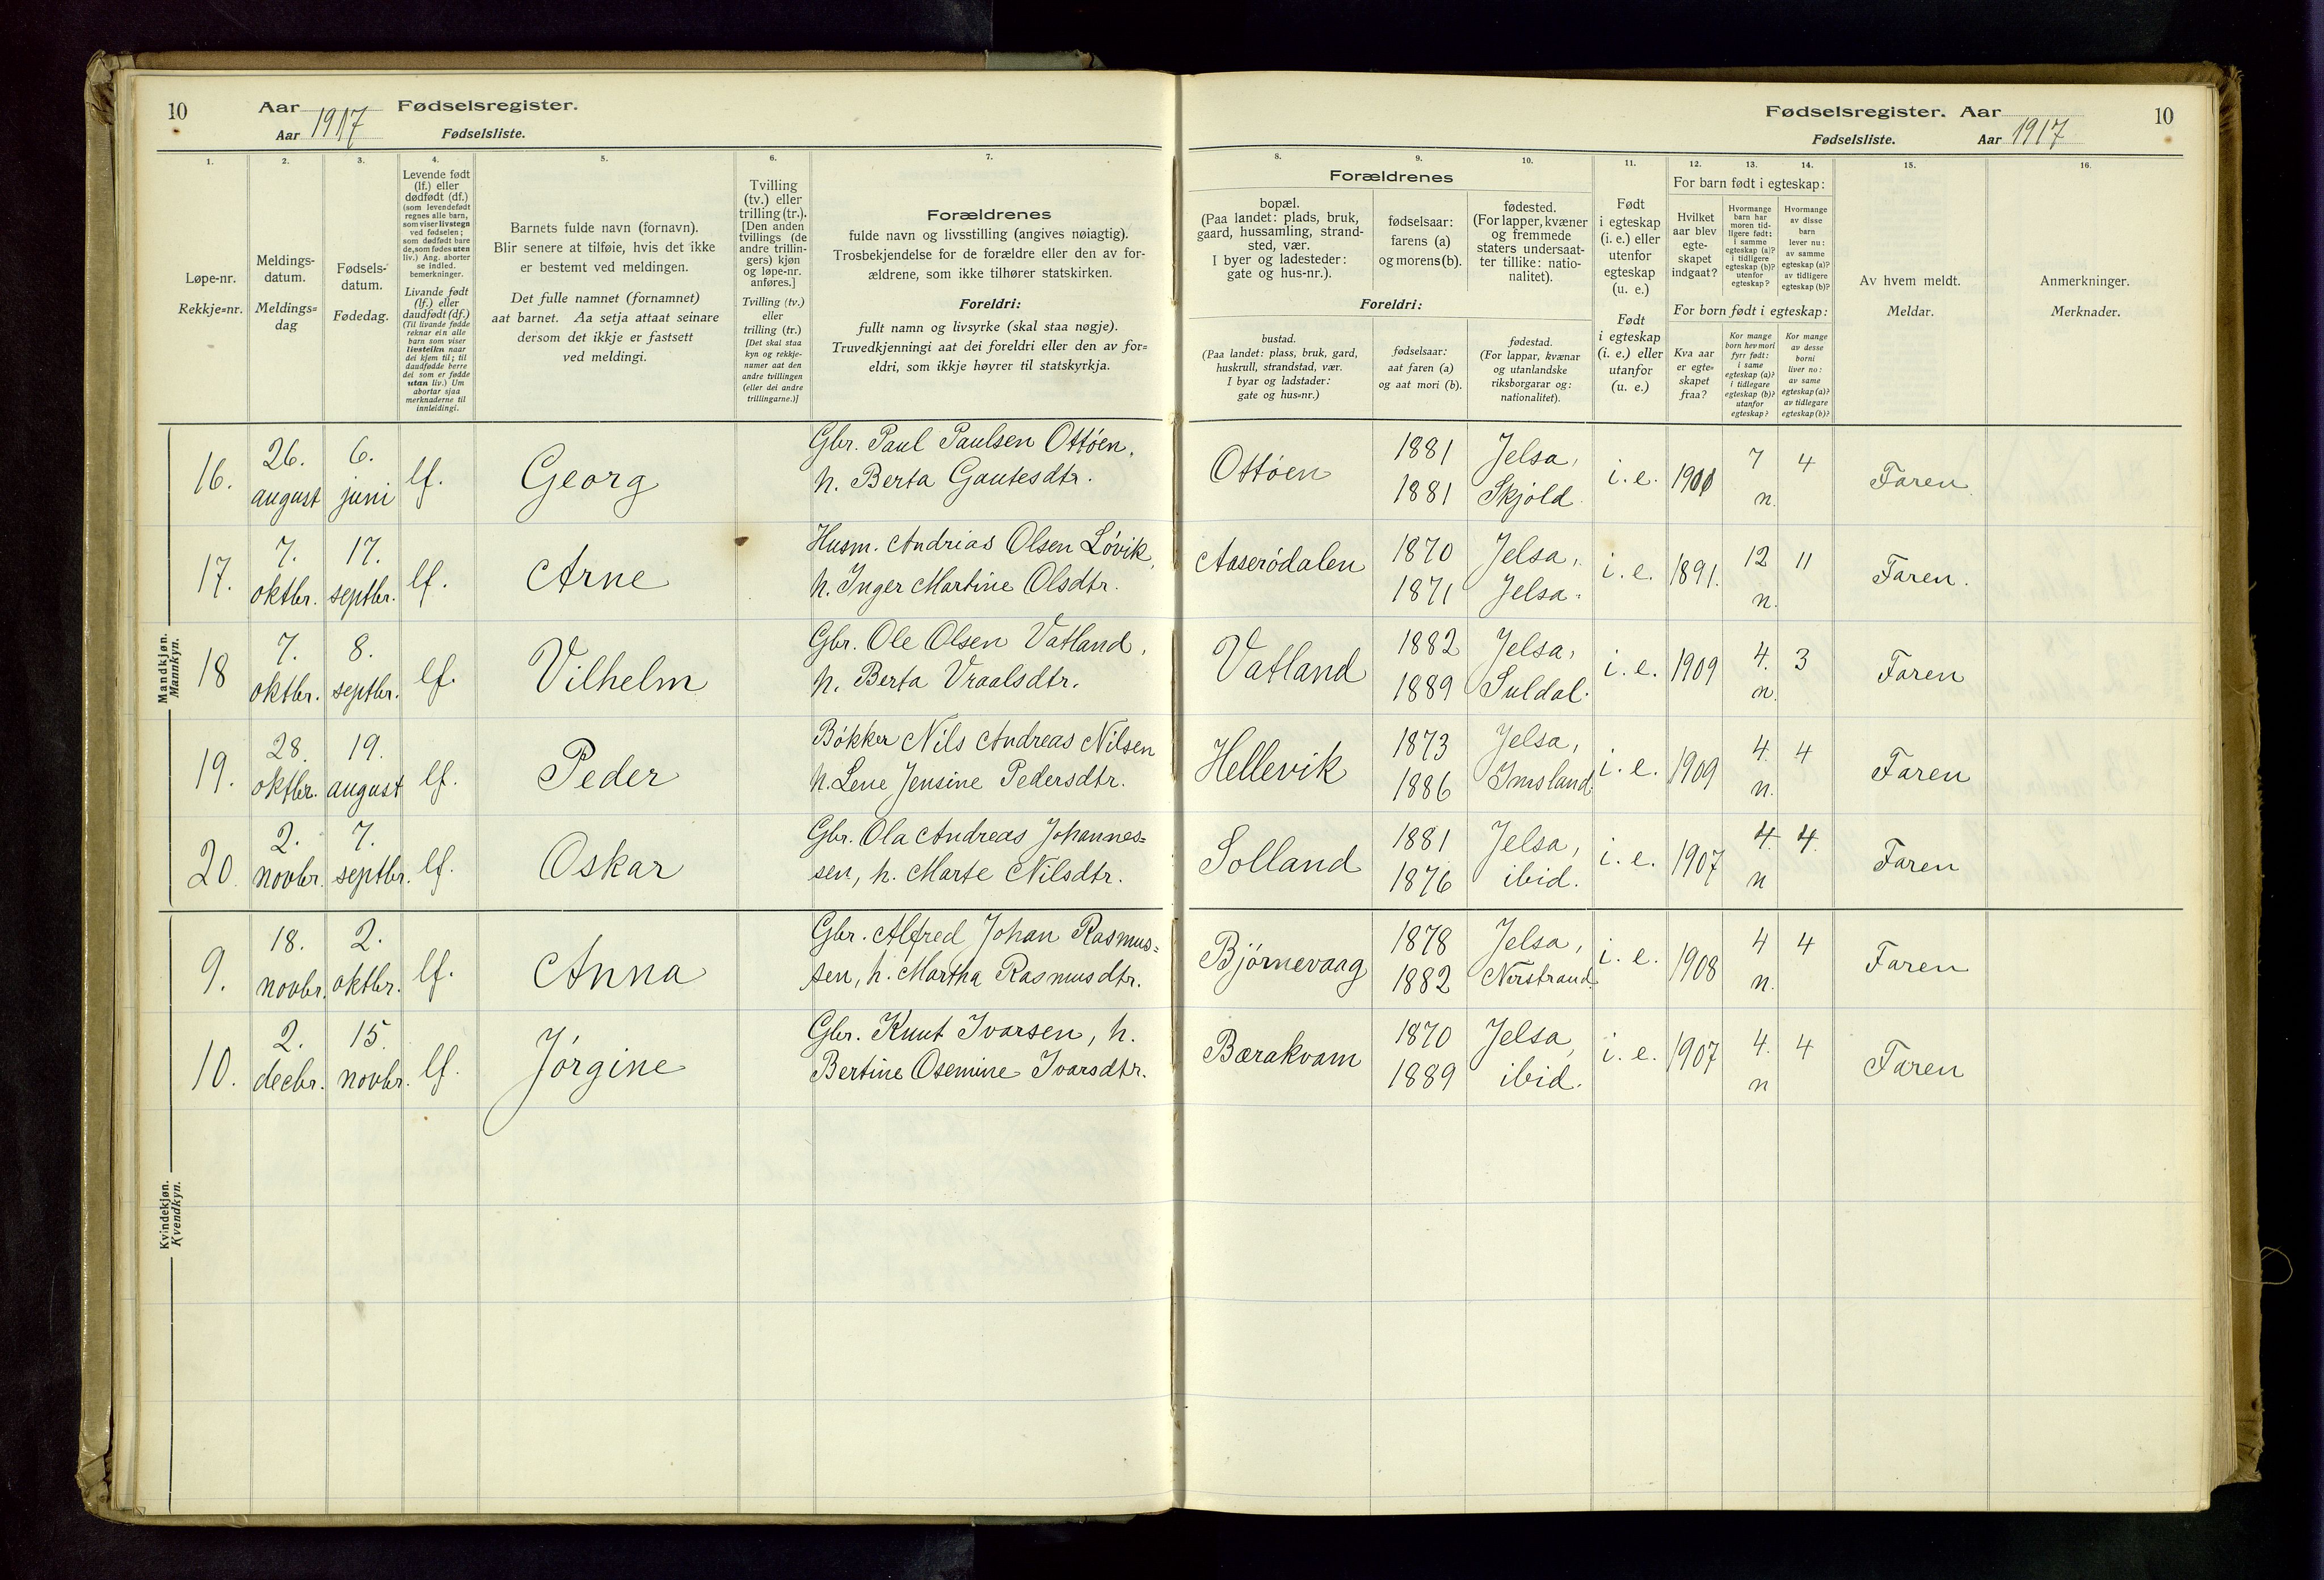 10 Aar Fødselsregister.
Aar 1917 Fødselsliste.
Fødselsregister. Aar 10
Fødselsliste. Aar 1917
1. 2. 3. 4. 5. 6. 7.
8. 9. 10. 11. 12. 13. 14. 15. 16.
Løpe-nr.
Rekkje=nr.
Meldings-
datum.
Meldings=
dag
Fødsels-
datum.
Fødedag.
Levende født
(lf.) eller
dødfødt (df.)
(som levendefødt
regnes alle barn,
som viser livstegn
ved fødselen;
som dødfødt bare
de, som fødes uten
liv.) Ang. aborter
se indled.
bemerkninger.
Livande født
(lf.) eller
daudfødt (df.)
(Til livande fødde
reknar ein alle
barn som viser
livsteikn naar
dei kjem til; til
daudfødde berre
dei som er fødde
utan liv.) Um
abortar sjaa
merknaderne til
innleidingi.
Barnets fulde navn (fornavn).
Blir senere at tilføie, hvis det ikke
er bestemt ved meldingen.
Det fulle namnet (fornamnet)
aat barnet. Aa setja attaat seinare
dersom det ikkje er fastsett
ved meldingi.
Tvilling
(tv.) eller
trilling (tr.).
[Den anden
tvillings (de
andre trillin-
gers) kjøn
og løpe-nr.
anføres.]
Tvilling (tv.)
eller
trilling (tr.)
[Det skal staa
kyn og rekkje-
numer aat den
andre tvillingen
(eller dei andre
trillingarne.)]
Forældrenes
fulde navn og livsstilling (angives nøiagtig).
Trosbekjendelse for de forældre eller den av for-
ældrene, som ikke tilhører statskirken.
Foreldri:
fullt namn og livsyrke (skal staa nøgje).
Truvedkjenningi aat dei foreldri eller den av for=
eldri, som ikkje høyrer til statskyrkja.
Forældrenes
bopæl.
(Paa landet: plads, bruk,
gaard, hussamling, strand-
sted, vær.
I byer og ladesteder:
gate og hus-nr.).
fødselsaar:
farens (a)
og morens (b).
fødested.
(For lapper, kvæner
og fremmede
staters undersaat-
ter tillike: natio-
nalitet).
Foreldri:
bustad.
(Paa landet: plass, bruk, gard,
huskrull, strandstad, vær.
I byar og ladstader:
gate og hus=nr.)
fødselsaar:
aat faren (a)
og aat mori (b).
fødestad.
(For lappar, kvænar
og utanlandske
riksborgarar og:
nationalitet).
Født
i egteskap
(i. e.) eller
utenfor
egteskap
(u. e.)
Født
i egteskap
(i. e.) eller
utanfor
(u. e.)
For barn født i egteskap:
Hvilket
aar blev
egte-
skapet
indgaat?
Hvormange
barn har
moren tid-
ligere født:
i samme
egteskap (a)?
i tidligere
egteskap (b)?
utenfor
egteskap?
Hvormange
av disse
barn
lever nu:
av samme
egteskap (a)?
av tidligere
egteskap (b)?
For born født i egteskap:
Kva aar
er egte=
skapet
fraa?
Kor mange
born hev mori
fyrr født:
i same
egteskap (a)?
i tidlegare
egteskap (b)?
utanfor
egteskap?
Kor mange
av desse
borni
liver no:
av same
egteskap (a)?
av tidlegare
egteskap (b)?
Av hvem meldt.
Meldar.
Anmerkninger.
Merknader.
Mandkjøn.
Mannkyn.
16. 26. august 6. juni lf. Georg Gbr. Paul Paulsen Ottøen,
h. Berta Gautesdtr. Ottøen 1881 1881 Jelsa, Skjold i. e. 1900 7 n. 4 Faren
17. 7. oktbr. 17. septbr. lf. Arne Husm. Andrias Olsen Løvik,
h. Inger Martine Olsdtr. Aaserødalen 1870 1871 Jelsa, Jelsa. i. e. 1891. 12 n. 11 Faren.
18 7. oktbr. 8. septbr. lf. Vilhelm Gbr. Ole Olsen Vatland,
h. Berta Vraalsdtr. Vatland 1882 1889 Jelsa, Suldal. i. e. 1909 4. n. 3 Faren
19. 28. oktbr. 19. august lf. Peder Bøkker Nils Andreas Nilsen
h. Lene Jensine Pedersdtr. Hellevik 1873 1886 Jelsa, Imsland. i. e. 1909 4. n. 4 Faren
20. 2. novbr. 7. septbr. lf. Oskar Gbr. Ola Andreas Johannes=
sen, h. Marte Nilsdtr. Solland 1881 1876 Jelsa, ibid. i. e. 1907 4. n 4. Faren
Kvindekjøn.
Kvendkyn.
9. 18. novbr. 2. oktbr. lf. Anna Gbr. Alfred Johan Rasmus=
sen, h. Martha Rasmusdtr. Bjørnevaag 1878 1882 Jelsa, Nerstrand. i. e. 1908 4 n. 4 Faren
10. 2. decbr. 15. novbr. lf. Jørgine Gbr. Knut Ivarsen, h.
Bertine Osemine Ivarsdtr. Bærakvam 1870 1889 Jelsa, ibid. i. e. 1907 4. n 4 Faren